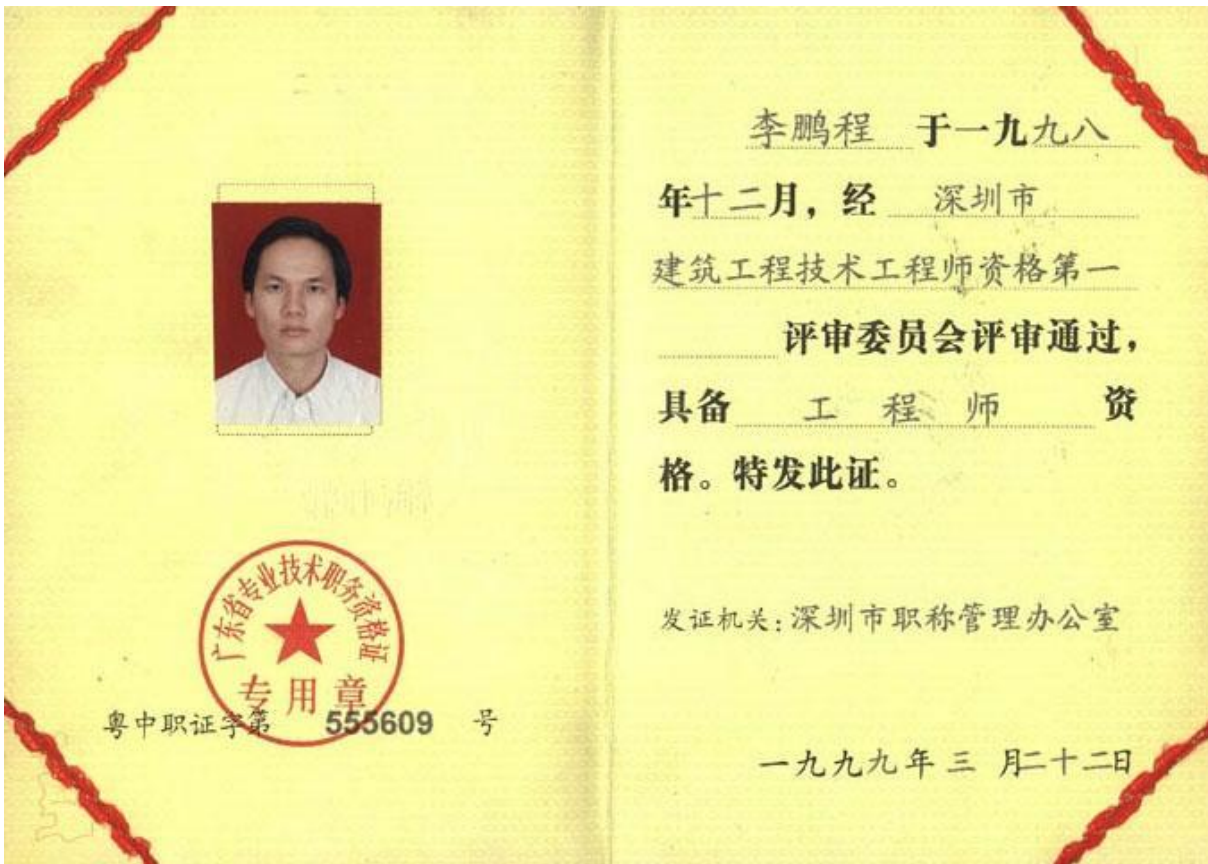 广东省专业技术职务资格证
专用章
粤中职证字第 555609 号
李鹏程 于一九九八
年十二月，经 深圳市
建筑工程技术工程师资格第一
评审委员会评审通过，
具备 工 程 师 资
格。特发此证。
发证机关：深圳市职称管理办公室
一九九九年三 月二十二日